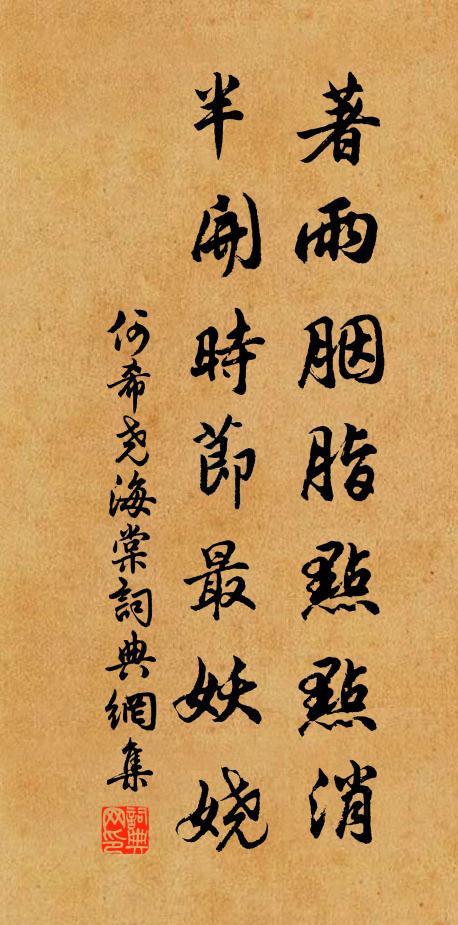 著雨胭脂點點消
半開時節最妖嬈
何希堯海棠詞典網集
詞典网印